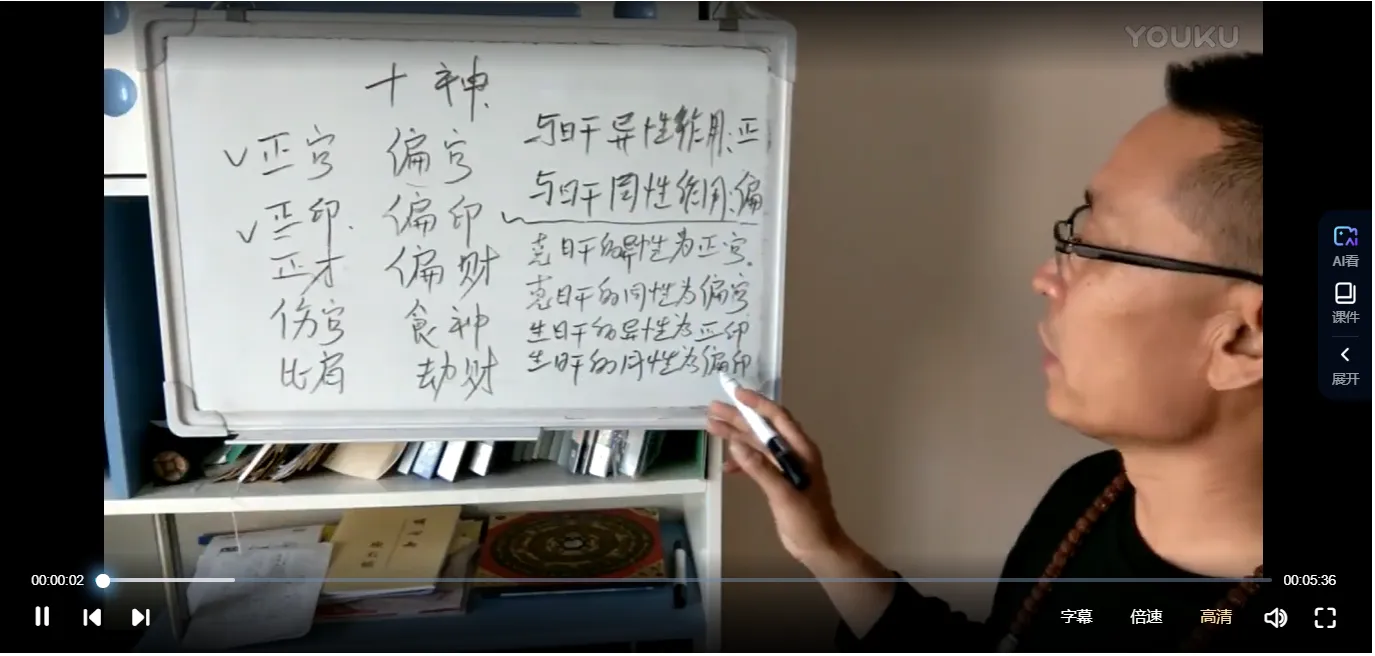 YOUKU
十神
✓正官 偏官
✓正印 偏印
正才 偏财
伤官 食神
比肩 劫财
与日干异性作用:正
与日干同性作用:偏
克日干的异性为正官
克日干的同性为偏官
生日干的异性为正印
生日干的同性为偏印
AI看
课件
展开
00:00:02
00:05:36
字幕
倍速
高清